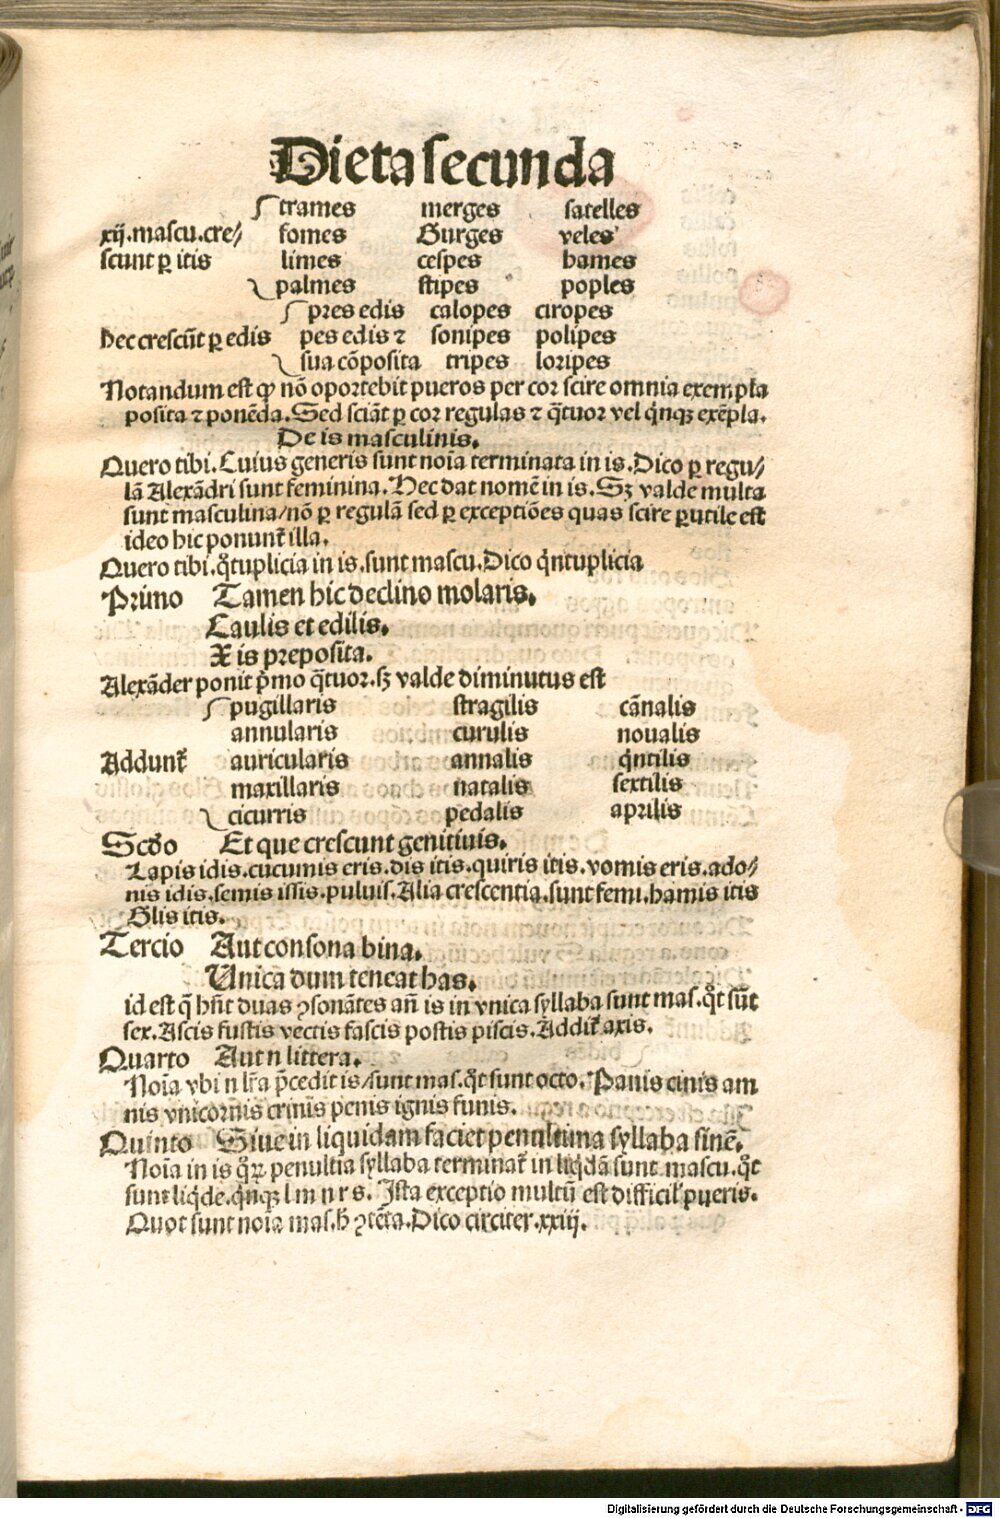 Dieta secunda
trames merges satelles
xij.mascu.cre/ fomes Gurges veles
scunt ꝑ itis limes cespes hames
palmes stipes poples
pres edis calopes ciropes
Hec crescūt ꝑ edis pes edis ⁊ sonipes polipes
sua cōposita tripes loripes
Notandum est ꝙ nō oportebit pueros per cor scire omnia exempla
posita ⁊ ponēda. Sed sciāt ꝑ cor regulas ⁊ q̄tuor vel q̇nqꝫ exēpla.
De is masculinis.
Quero tibi. Cuius generis sunt noīa terminata in is. Dico ꝑ regu/
lā Alexādri sunt feminina. Hec dat nomē in is. Sꝫ valde multa
sunt masculina/nō ꝑ regulā sed ꝑ exceptiōes quas scire ꝑutile est
ideo hic ponunt̄ illa.
Quero tibi. q̊tuplicia in is. sunt mascu. Dico q̇ntuplicia
Primo Tamen hic declino molaris.
Caulis et edilis.
X is preposita.
Alexāder ponit p̄mo q̄tuor. sꝫ valde diminutus est
pugillaris stragilis cānalis
annularis curulis noualis
Addunt̄ auricularis annalis q̇ntilis
maxillaris natalis sextilis
cicurris pedalis aprilis
Scḋo Et que crescunt genitiuis.
Lapis idis. cucumis eris. dis itis. quiris itis. vomis eris. ado/
nis idis. semis issis. puluis. Alia crescentia. sunt femi. hamis itis
Glis itis.
Tercio Aut consona bina.
Unica dum teneat has.
id est q̄ hn̄t duas ꝯsonātes an̄ is in vnica syllaba sunt mas. q̊t sūt
sex. Ascis fustis vectis fascis postis piscis. Addit̄ axis.
Quarto Aut n littera.
Noīa vbi n lr̄a p̄cedit is/sunt mas. q̊t sunt octo. Panis cinis am
nis vnicornis crinis penis ignis funis.
Quinto Siue in liquidam faciet penultima syllaba finē.
Noīa in is q̊ꝝ penultīa syllaba terminat̄ in liq̇dā sunt mascu. q̊t
sunt liq̇de. q̇nqꝫ l m n r s. Ista exceptio multū est difficil' pueris.
Quot sunt noīa mas. ħ ꝯtēta. Dico circiter. xxiij.
Digitalisierung gefördert durch die Deutsche Forschungsgemeinschaft - DFG